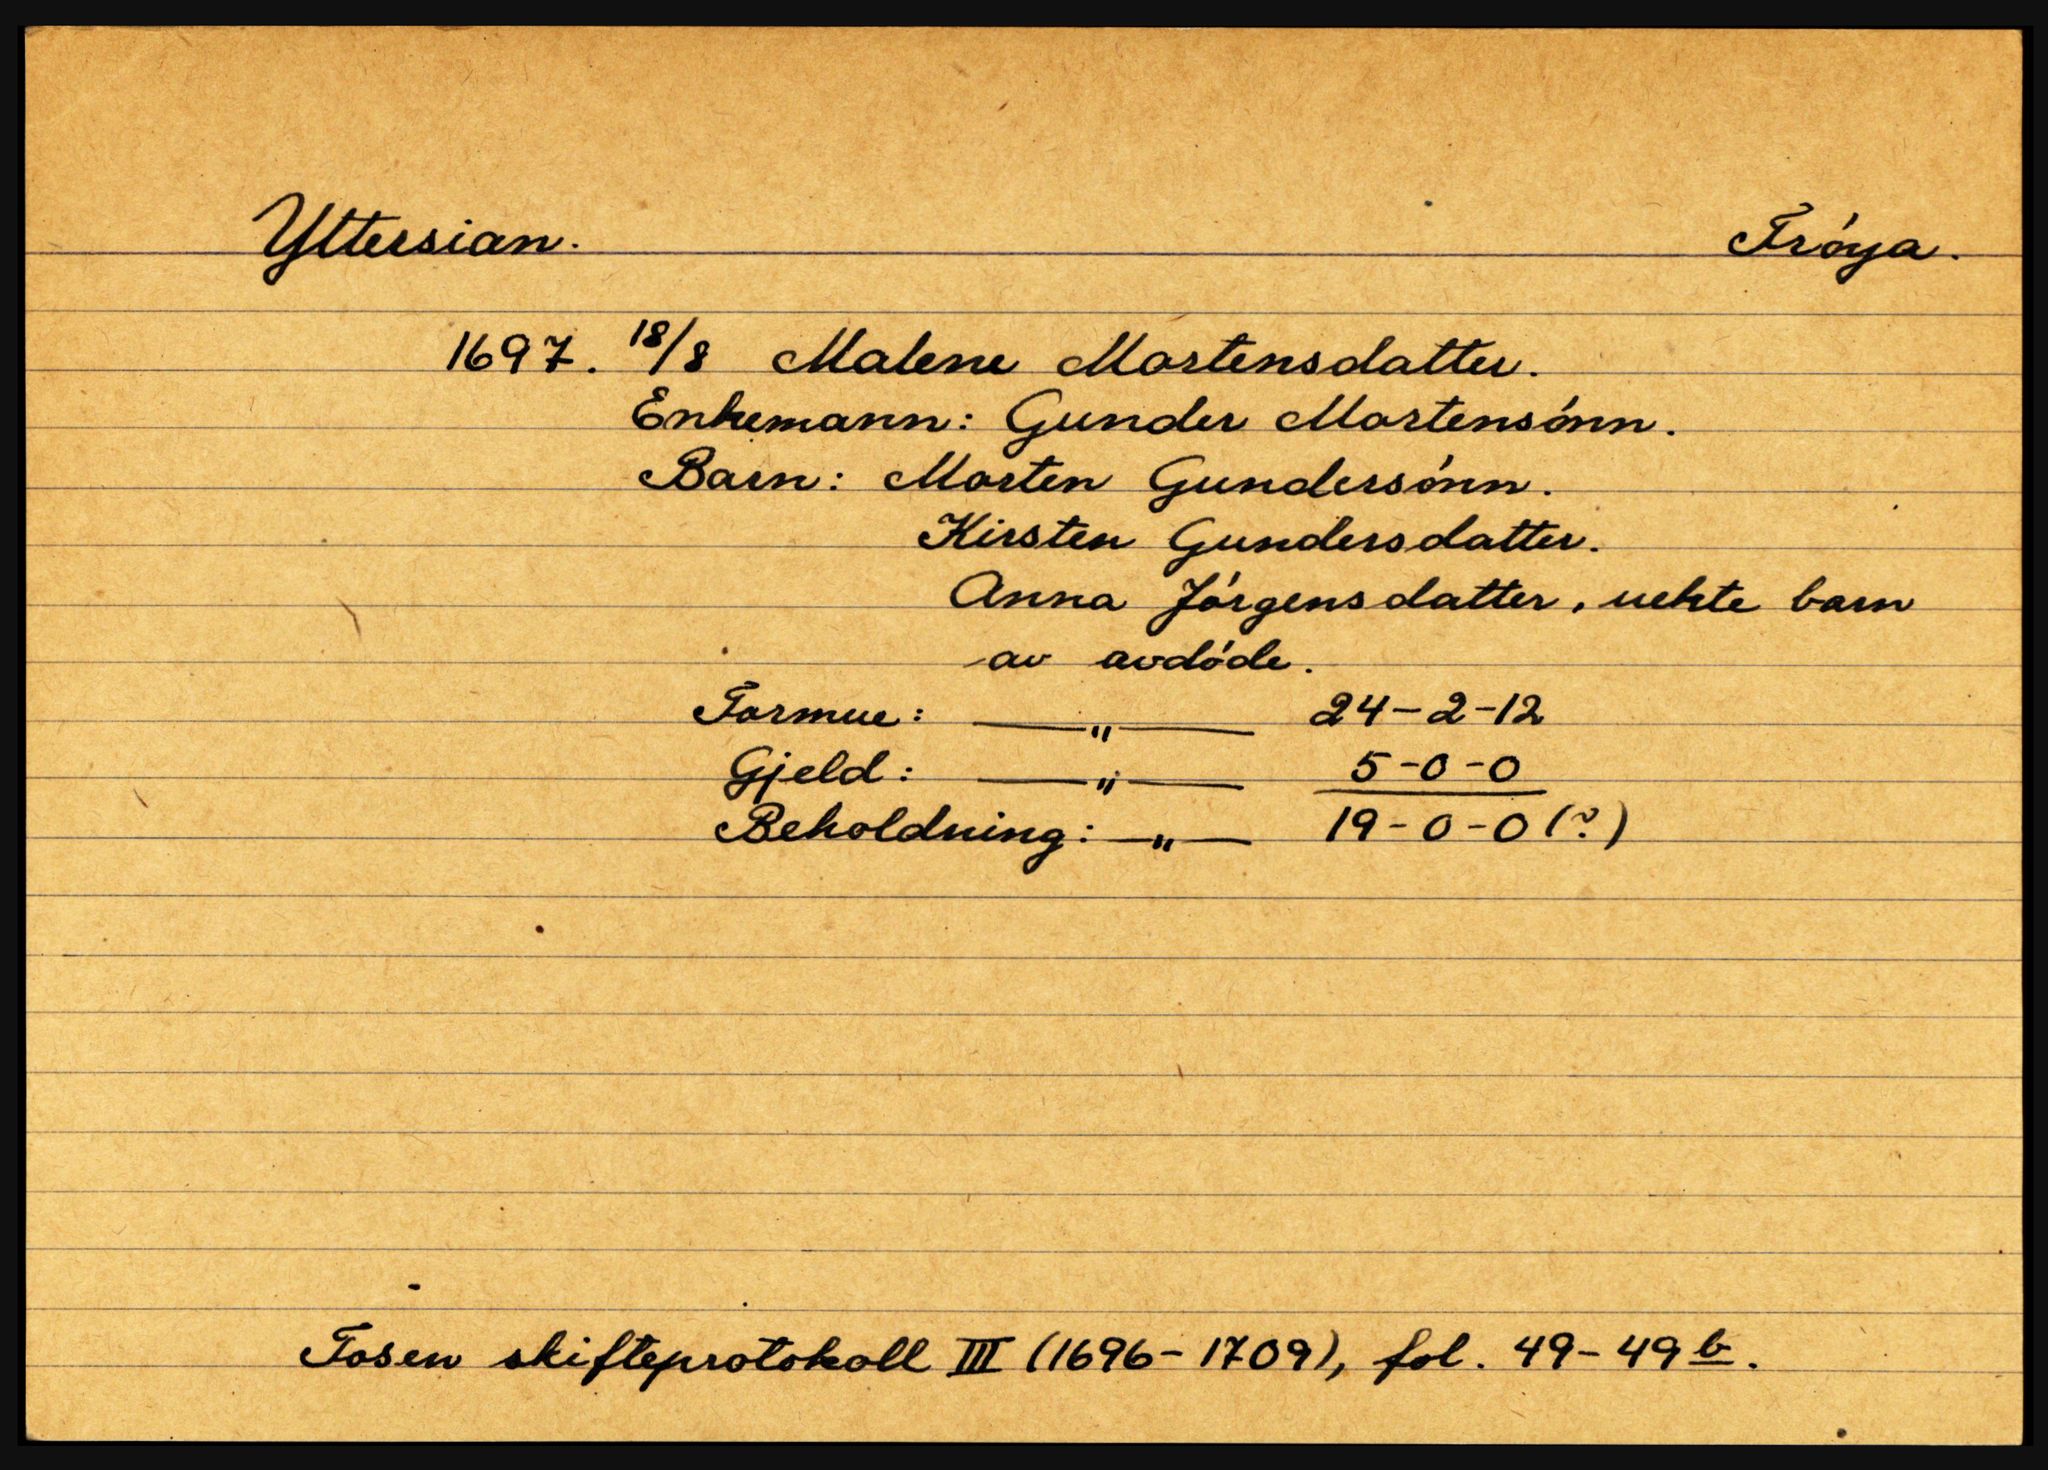 Yttersian. Frøya.
1697. 18/8 Malene Mortensdatter.
Enkemann: Gunder Mortensønn.
Barn: Morten Gundersønn.
Kirsten Gundersdatter.
Anna Jørgensdatter, uekte barn
av avdøde.
Formue: —"— 24-2-12
Gjeld: —"— 5-0-0
Beholdning: —"— 19-0-0 (?)
Fosen skifteprotokoll III (1696-1709), fol. 49-49b.